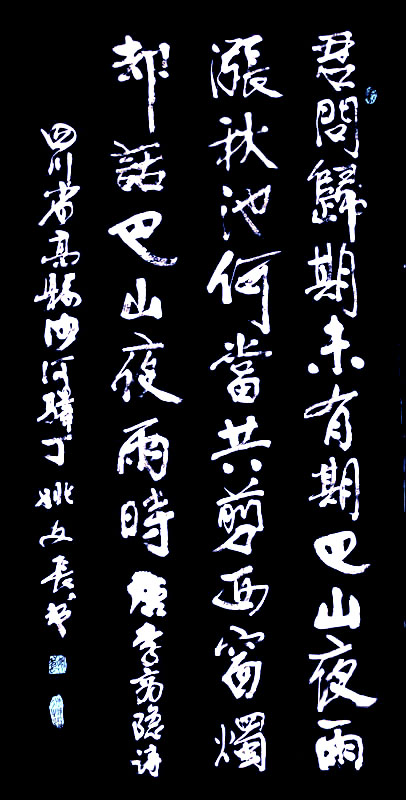 君問歸期未有期巴山夜雨
漲秋池何當共剪西窗燭
却話巴山夜雨時 唐李商隐诗
四川省高縣沙河驛丁 姚文長书